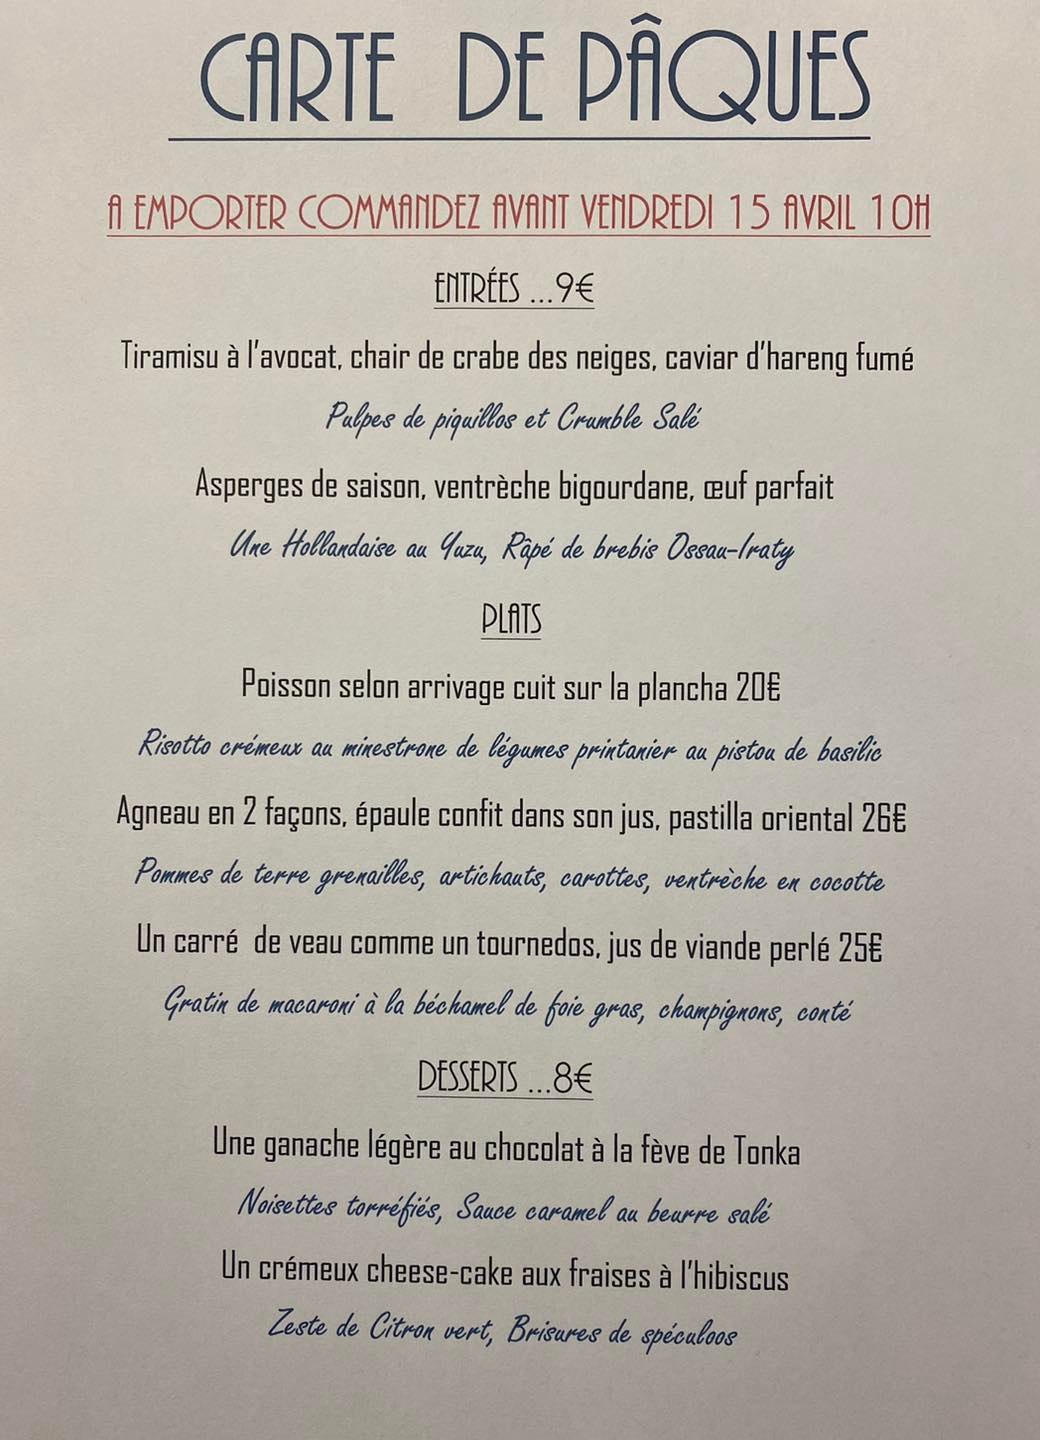 CARTE DE PÂQUES
A EMPORTER COMMANDEZ AVANT VENDREDI 15 AVRIL 10H
ENTRÉES ...9€
Tiramisu à l'avocat, chair de crabe des neiges, caviar d'hareng fumé
Pulpes de piquillos et Crumble Salé
Asperges de saison, ventrèche bigourdane, œuf parfait
Une Hollandaise au Yuzu, Râpé de brebis Ossau-Iraty
PLATS
Poisson selon arrivage cuit sur la plancha 20€
Risotto crémeux au minestrone de légumes printanier au pistou de basilic
Agneau en 2 façons, épaule confit dans son jus, pastilla oriental 26€
Pommes de terre grenailles, artichauts, carottes, ventrèche en cocotte
Un carré de veau comme un tournedos, jus de viande perlé 25€
Gratin de macaroni à la béchamel de foie gras, champignons, conté
DESSERTS ...8€
Une ganache légère au chocolat à la fève de Tonka
Noisettes torréfiés, Sauce caramel au beurre salé
Un crémeux cheese-cake aux fraises à l'hibiscus
Zeste de Citron vert, Brisures de spéculoos